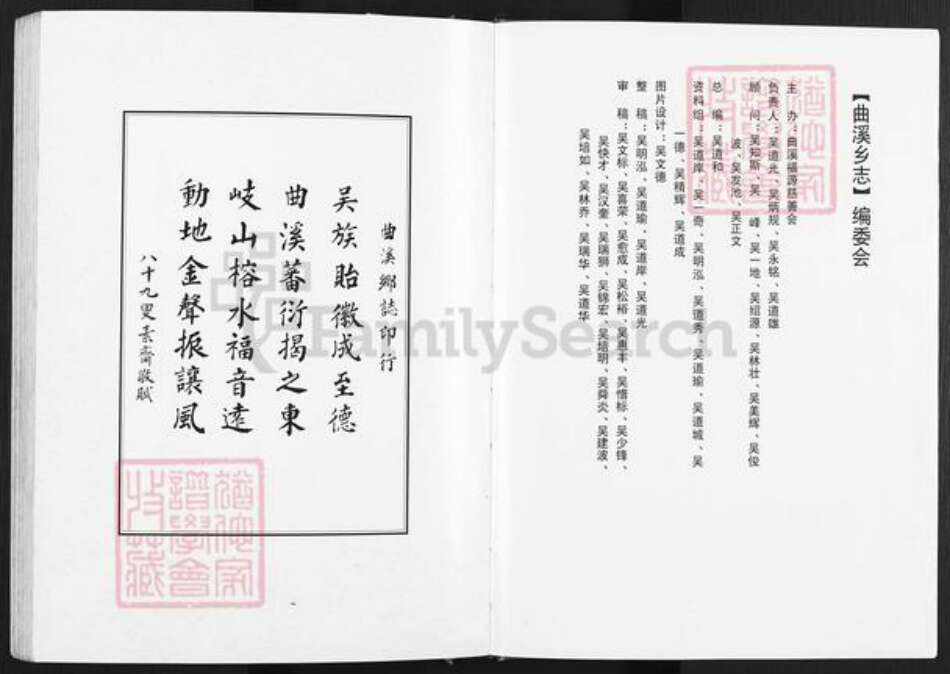 【曲溪乡志】编委会
主　办：曲溪福源慈善会
负责人：吴道光、吴炳规、吴永铭、吴道雄
顾　问：吴知斯、吴　峰、吴一地、吴绍源、吴林壮、吴美辉、吴俊
波、吴发池、吴正文
总　编：吴道和
资料组：吴道岸、吴一奇、吴明泓、吴道秀、吴道瑜、吴道城、吴
一德、吴精辉、吴道成
图片设计：吴文德
整　稿：吴明泓、吴道瑜、吴道岸、吴道光
审　稿：吴文标、吴喜荣、吴愈成、吴松裕、吴惠丰、吴惜标、吴少锋、
吴快才、吴汉奎、吴瑞狮、吴锦宏、吴培明、吴舜炎、吴建波、
吴培如、吴林乔、吴瑞华、吴道华
曲溪鄉誌印行
吴族貽徽成至德
曲溪蕃衍揭之東
岐山榕水福音遠
動地金聲振讓風
八十九叟素齋敬賦
FamilySearch